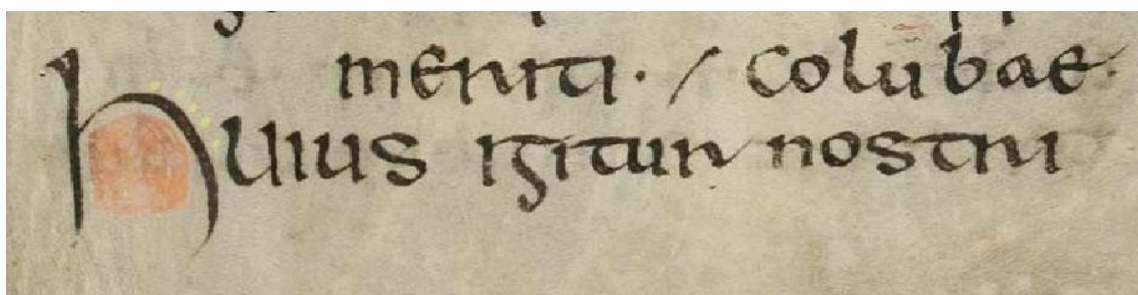 meriti · / Colūbae ·
huius igitur nostri